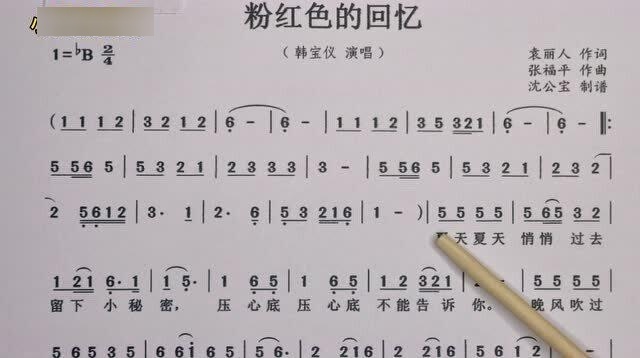 粉红色的回忆
1=♭B 2/4
（韩宝仪 演唱）
袁丽人 作词
张福平 作曲
沈公宝 制谱
( 1 1 1 2 | 3 2 1 2 | 6 - | 6 - | 1 1 1 2 | 3 5 321 | 6 - | 6 - ‖:
5 56 5 | 5 3 2 1 | 2 3 3 3 | 3 - | 5 56 5 | 5 3 2 1 | 2 3 2
2 5612 | 3· 1 | 2· 6 | 5 3 216 | 1 - ) | 5 5 5 5 | 5 65 3 2
天夏天 悄悄 过去
1 21 6· 1 | 1 5· | 1 6 5 | 1 6 5 | 1 2 321 | 6· | 5 5 5 5
留下 小秘密，压心底压心底 不能告诉你。晚风吹过